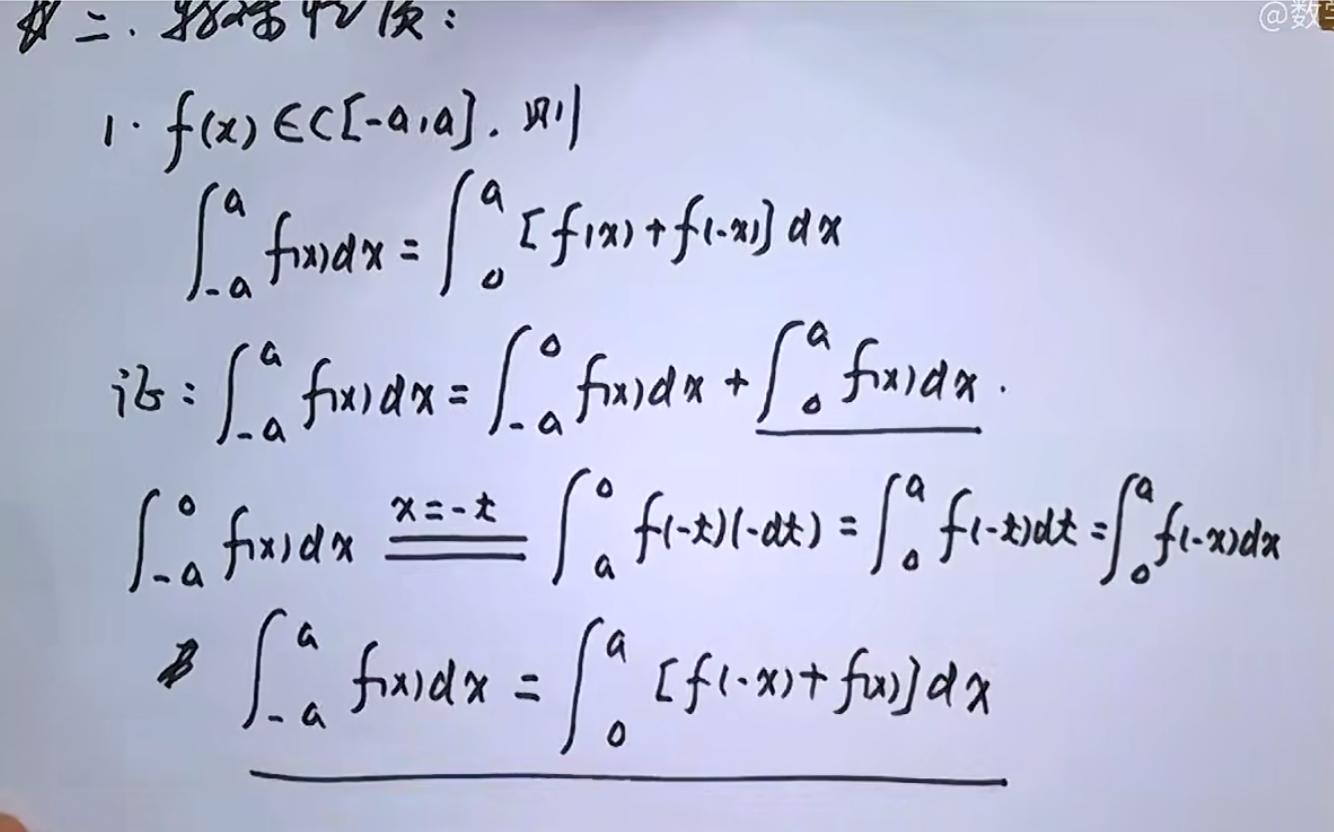 @数学
二. 特殊性质:
1. f(x)∈C[-a,a]. 则
∫_{-a}^{a} f(x)dx = ∫_{0}^{a} [f(x)+f(-x)]dx
证: ∫_{-a}^{a} f(x)dx = ∫_{-a}^{0} f(x)dx + ∫_{0}^{a} f(x)dx.
∫_{-a}^{0} f(x)dx \xlongequal{x=-t} ∫_{a}^{0} f(-t)(-dt) = ∫_{0}^{a} f(-t)dt = ∫_{0}^{a} f(-x)dx
∫_{-a}^{a} f(x)dx = ∫_{0}^{a} [f(-x)+f(x)]dx